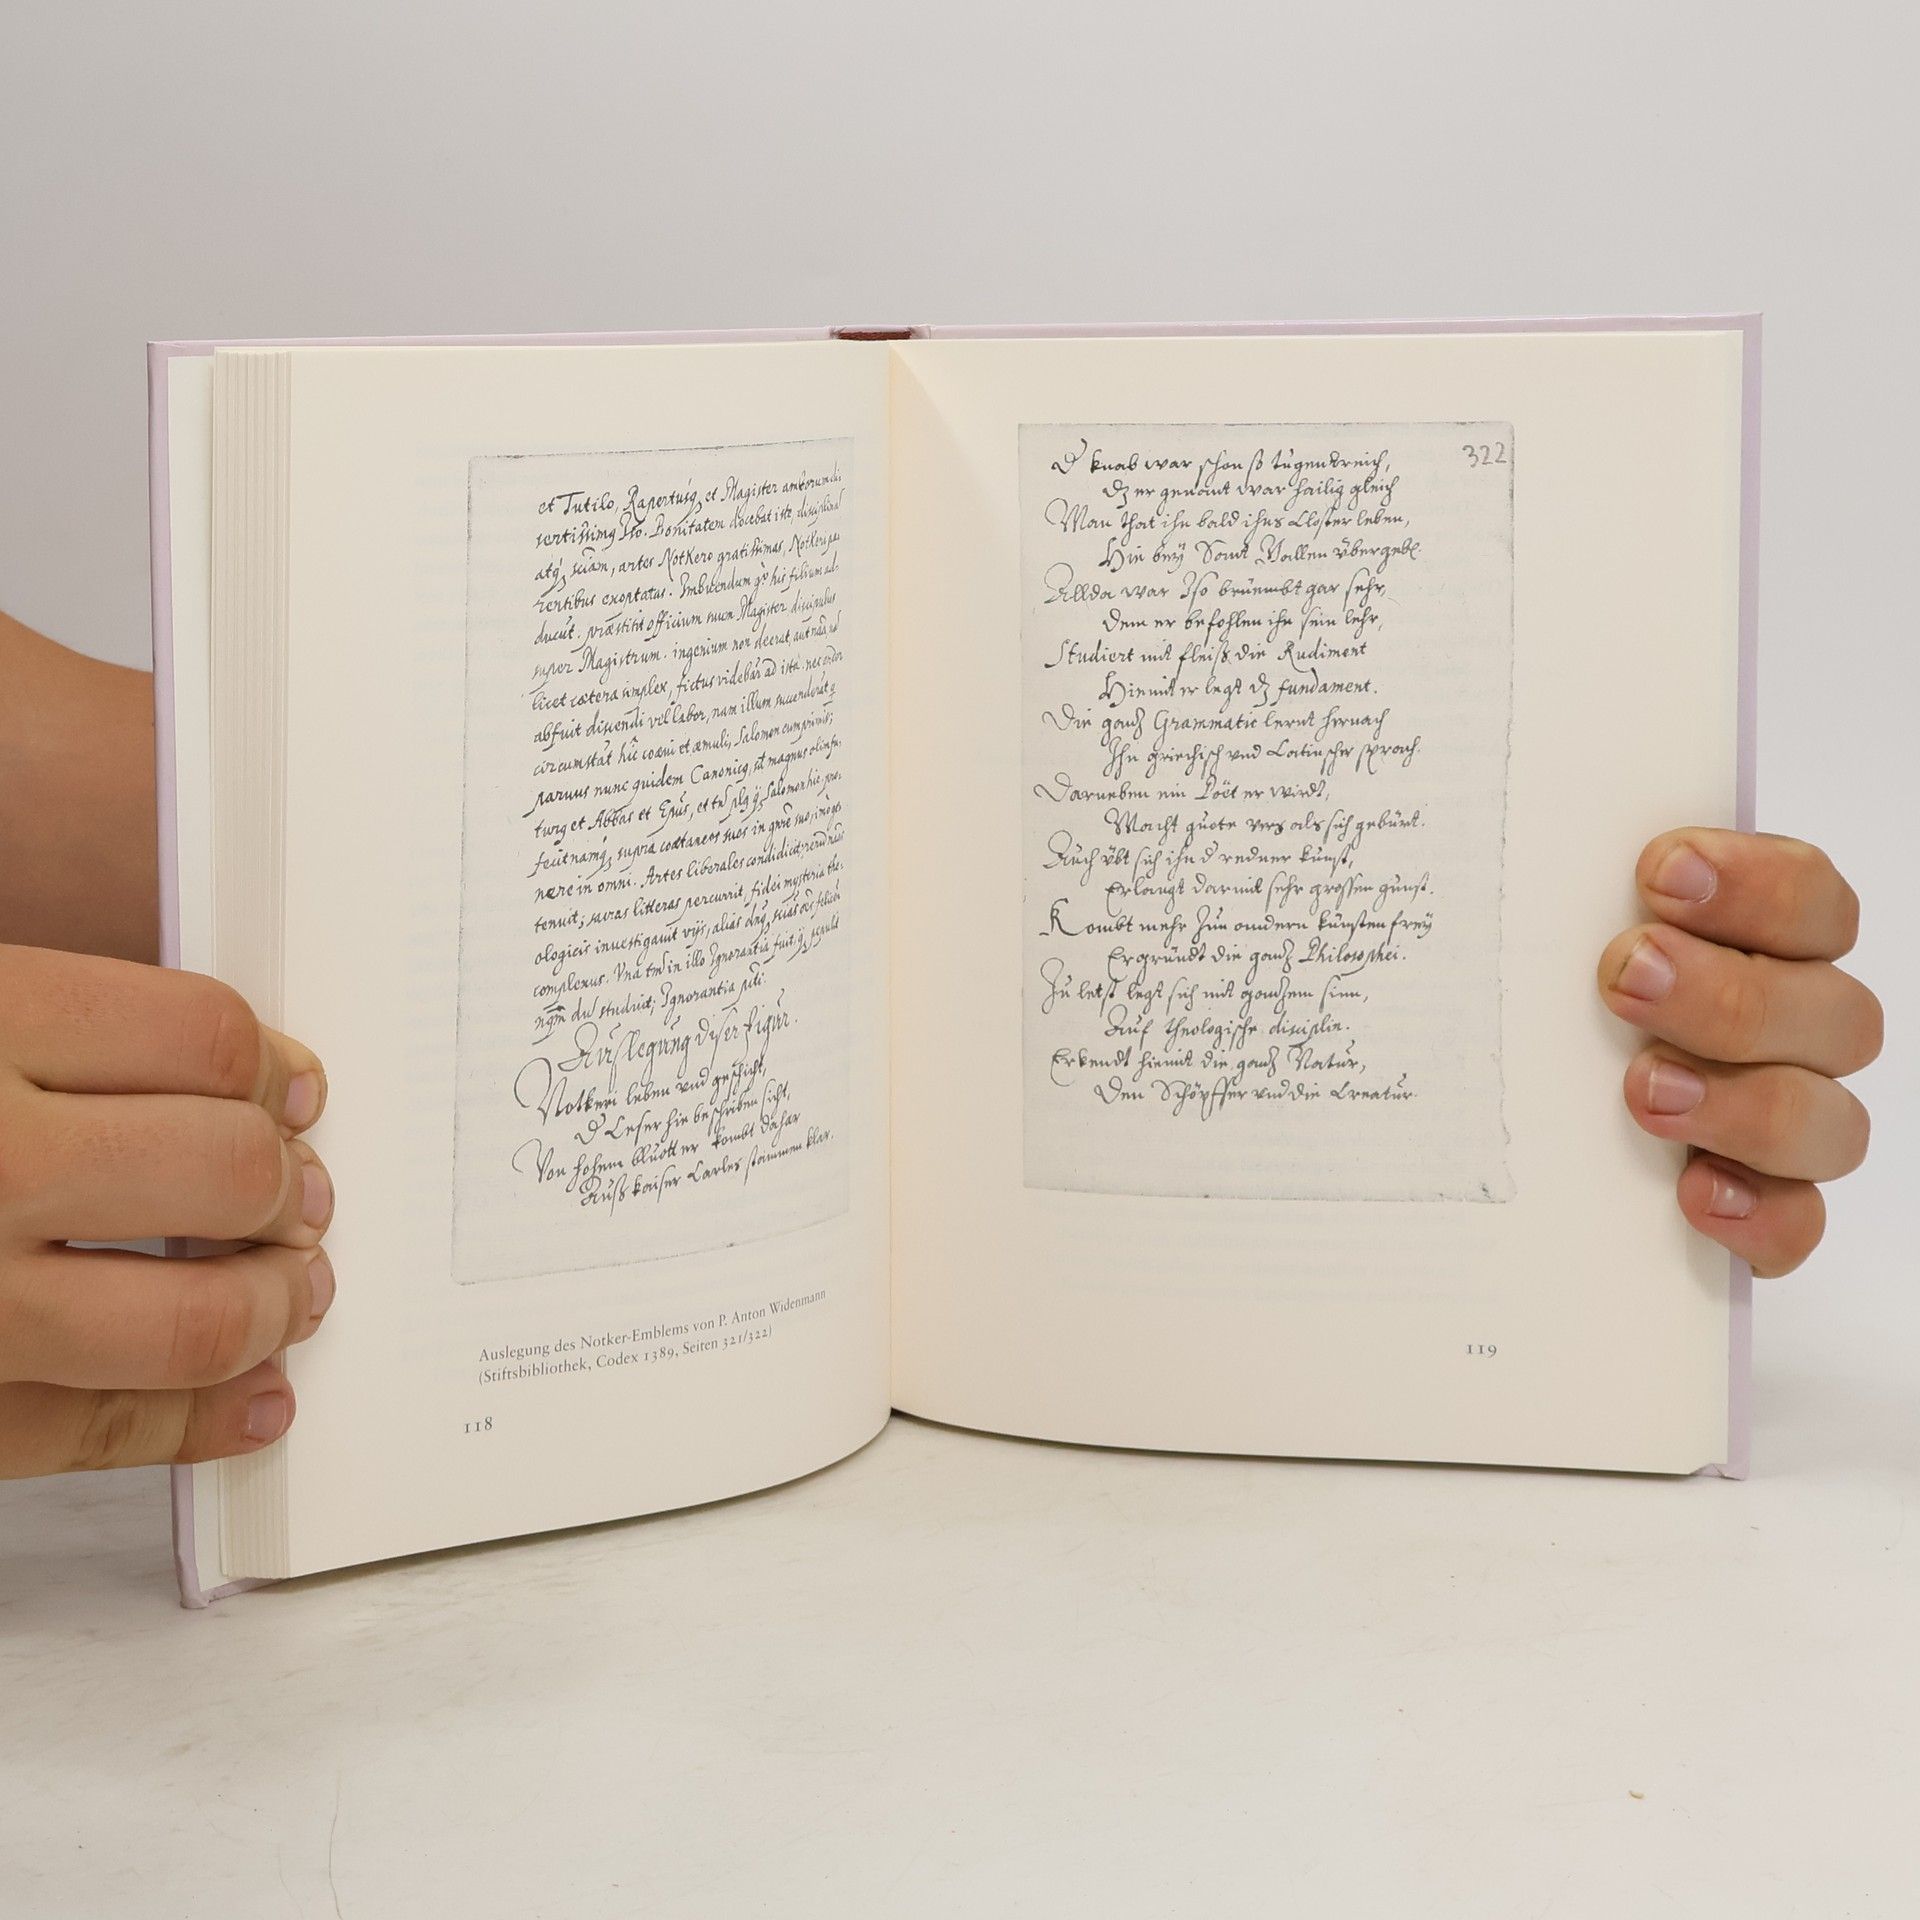 et Tutilo, Rapertusq, et Magister amborum di
sertissimq Iso. Bonitatem docebat iste, disciplinā
atq, sciam, artes Notkero gratissimas, Notkeri pa-
rentibus exoptatas. Imbuendum his filium ad-
ducūt. præstitit officium suum Magister discipulus
super Magistrum. ingenium non deerat,
licet cætera simplex, fictus videbat ad ista. nec
abfuit discendi vel labor, nam illum succenderat
circumstāt hīc coævi et æmuli, Salomon cumprimis;
paruus nunc quidem Canonicq, sꝫ magnus olim fu-
turq et Abbas et Epūs, et Salomon hic pro-
fecit namq, supra coætaneos suos in suo, imò ge-
nere in omni. Artes liberales condidicit,
tenuit; sacras litteras percurrit, fidei mysteria the-
ologicis inuestigauit vijs, alias
complexus. Vna in illo Ignorantia fuit,
studuit; Ignorantia
Auslegung diser figur.
Notkeri leben und geschicht,
D Leser hie beschriben sicht,
Von hohem bluott er kombt dahar
Auß kaiser Carles stammen klar.
Auslegung des Notker-Emblems von P. Anton Widenmann
(Stiftsbibliothek, Codex 1389, Seiten 321/322)
118
322
D knab war schon so tugendreich,
Dz er genant war hailig gleich
Man that ihn bald ihns Closter leben,
Hie bey Sant Gallen übergebe.
Allda war Iso brüembt gar sehr,
Dem er befohlen ihn sein lehr,
Studiert mit fleiß die Rudiment
Hiemit er legt dz fundament.
Die gantz Grammatic lernt hernach
Ihn griechisch vnd Latinscher sprach.
Darneben ein Poët er wirdt,
Macht guote vers als sich gebürt.
Auch übt sich ihn d redner kunst,
Erlangt darmit sehr grossen gunst.
Kombt mehr zun andern künsten frey
Ergründt die gantz Philosophei.
Zu letst legt sich mit gantzem sinn,
Auf theologische disciplin.
Erkendt hiemit die gantz Natur,
Den Schöpffer vnd die Creatur.
119